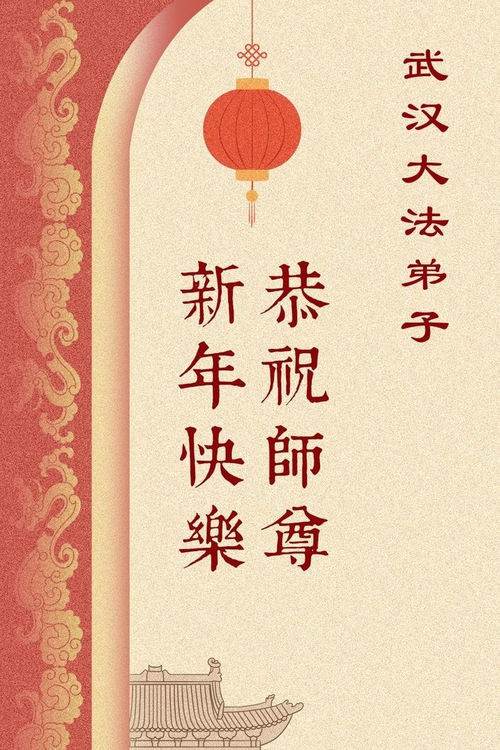 武汉大法弟子
恭祝師尊
新年快樂